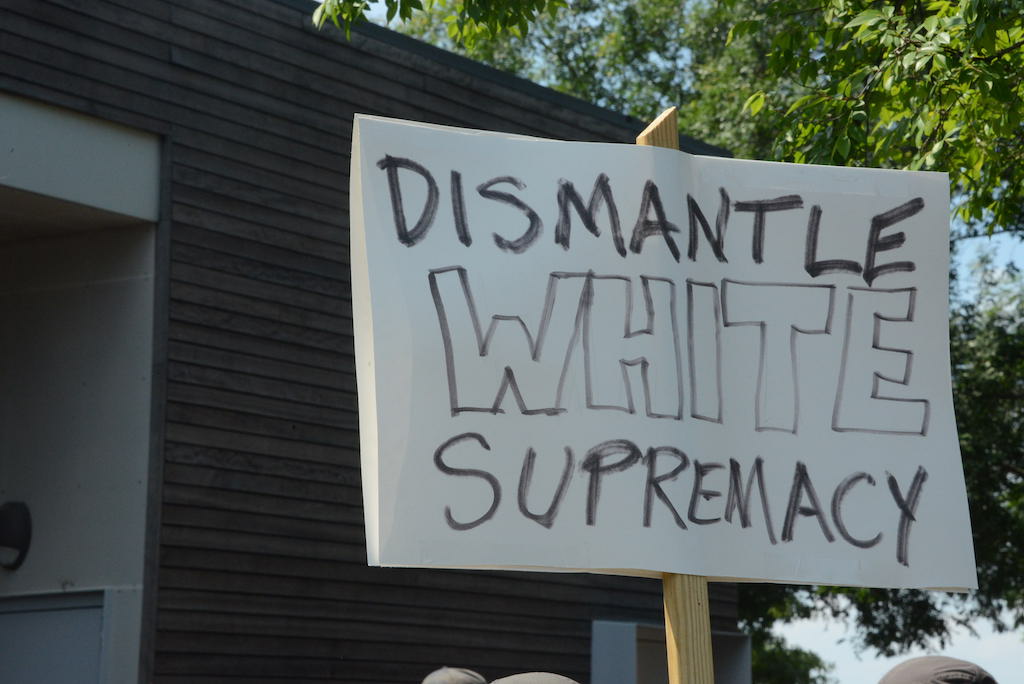 DISMANTLE
WHITE
SUPREMACY